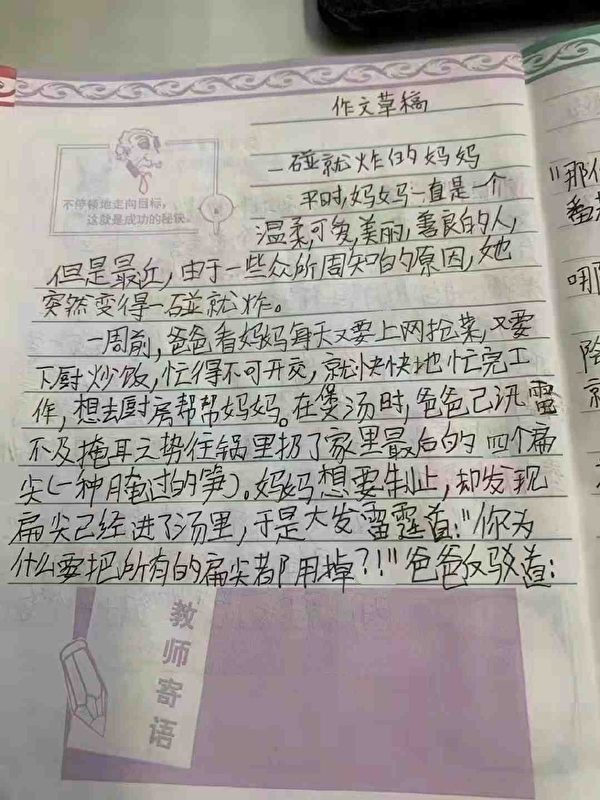 作文草稿
不停顿地走向目标，
这就是成功的秘诀。
一碰就炸的妈妈
平时，妈妈一直是一个
温柔，可爱，美丽，善良的人，
但是最近，由于一些众所周知的原因，她
突然变得一碰就炸。
一周前，爸爸看妈妈每天又要上网抢菜，又要
下厨炒饭，忙得不可开交，就快快地忙完工
作，想去厨房帮帮妈妈。在煲汤时，爸爸己汛雷
不及掩耳之势往锅里扔了家里最后的四个扁
尖(一种腌过的笋)。妈妈想要制止，却发现
扁尖已经进了汤里，于是大发雷霆道："你为
什么要把所有的扁尖都用掉？！"爸爸反驳道：
教师寄语
"那
番
哪
降
就